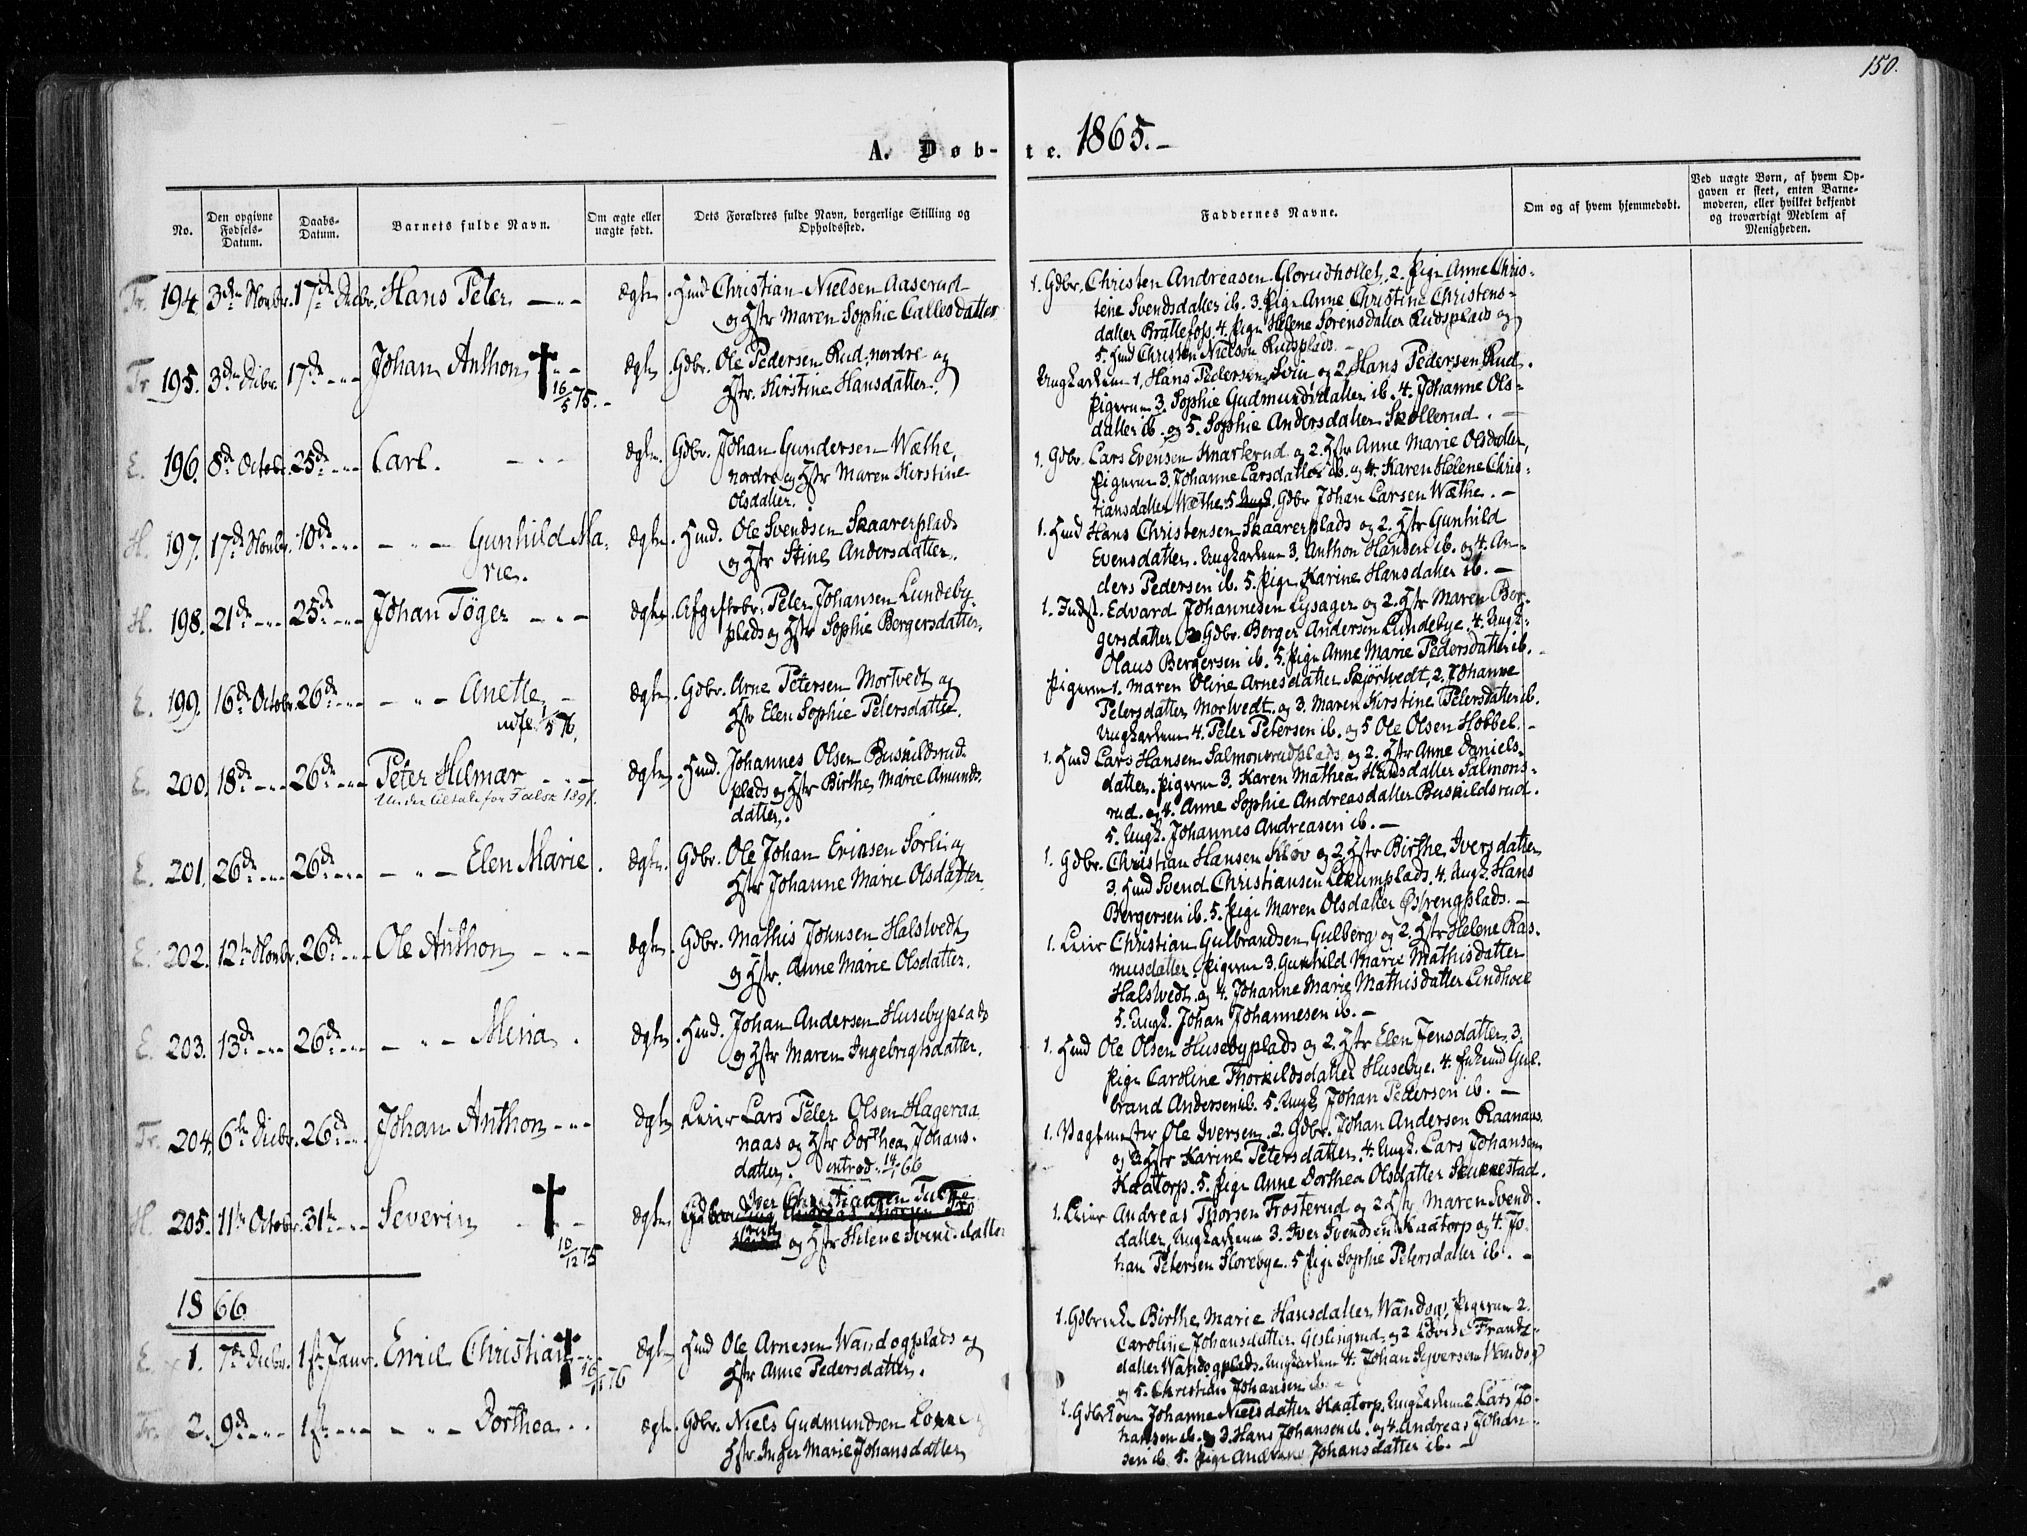 150.
A. Døb-te. 1865.
No.
Den opgivne Fødsels-Datum.
Daabs-Datum.
Barnets fulde Navn.
Om ægte eller uægte født.
Dets Forældres fulde Navn, borgerlige Stilling og Opholdssted.
Faddernes Navne.
Om og af hvem hjemmedøbt.
Ved uægte Børn, af hvem Opgaven er skeet, enten Barnemoderen, eller hvilket bekjendt og troværdigt Medlem af Menigheden.
Tr. 194. 3de Novbr. 17de Decbr. Hans Peter ægte. Hmd Christian Nielsen Aaserud
og Hstr Maren Sophie Callesdatter
1. Gdbr. Christen Andreasen Glorudhollet, 2. Pige Anne Chris-
tine Svendsdatter ib. 3. Pige Anne Christine Christens-
datter Brattefoss 4. Pige Helene Sørensdatter Rudsplads og
5. Hmd Christen Nielsen Rudsplads. -
Tr 195. 3de Decbr. 17de Johan Anthon 16/5 75. ægte. Gdbr. Ole Pedersen Rud, nordre og
Hstr. Kirstine Hansdatter.
Ungkarlene 1. Hans Pedersen Svin og 2. Hans Pedersen Rud.
Pigerne 3. Sophie Gudmundsdatter ib. 4. Johanne Ols-
datter ib. og 5. Sophie Andersdatter Skøllerud. -
E. 196. 8de Octobr. 25de Carl. ægte. Gdbr. Johan Gundersen Wæthe,
nordre og Hstr Maren Kirstine
Olsdatter.
1. Gdbr. Lars Evensen Knarkrud og 2. Hstr Anne Marie Olsdatter,
Pigerne 3. Johanne Larsdatter ib. og 4. Karen Helene Chris-
tiansdatter Wæthe 5 Ungk. Gdbr Johan Larsen Wæthe. -
H. 197. 17de Novbr. 10de Gunhild Ma-
rie.
ægte. Hmd. Ole Svendsen Skaarerplads
og Hstr Stine Andersdatter.
1. Hmd Hans Christensen Skaarerplads og 2. Hstr Gunhild
Evensdatter. Ungkarlene 3. Anthon Hansen ib. og 4. An-
ders Pedersen ib. 5. Pige Karine Hansdatter ib. -
H. 198. 21de 25de Johan Tøger ægte. Afgiftsbr. Peter Johansen Lundeby-
plads og Hstr Sophie Bergersdatter.
1. Indst. Edvard Johannesen Lysager og 2. Hstr Maren Ber-
gersdatter 3 Gdbr. Berger Andersen Lundebye. 4. Ungk.
Olaus Bergersen ib. 5. Pige Anne Marie Pedersdatter ib.
E. 199. 16de Octobr. 26de Anette ægte. Gdbr. Arne Petersen Mortvedt og
udfl. 1/5 76.
Hstr Elen Sophie Petersdatter.
Pigerne 1. Maren Oline Arnesdatter Skjørtvedt, 2. Johanne
Petersdatter Mortvedt og 3. Maren Kirstine Petersdatter ib.
Ungkarlene 4. Peter Petersen ib. og 5 Ole Olsen Hobbel. -
E. 200. 18de 26de Peter Hilmar ægte. Hmd. Johannes Olsen Buskildsrud-
Under tiltale for Falsk 1891.
plads og Hstr Birthe Marie Amunds-
datter.
1. Hmd Lars Hansen Salmonsrudplads og 2. Hstr Anne Daniels-
datter. Pigerne 3. Karen Mathea Hansdatter Salmons-
rud og 4. Anne Sophie Andreasdatter Buskildsrud.
5. Ungk. Johannes Andreasen ib. -
E. 201. 26de 26de Elen Marie. ægte. Gdbr. Ole Johan Eriksen Sørli og
Hstr Johanne Marie Olsdatter.
1. Gdbr. Christian Hansen Kløv og 2. Hstr Birthe Iversdatter
3. Hmd Svend Christiansen Lekumplads. 4. Ungk. Hans
Bergersen ib. 5. Pige Maren Olsdatter Østrengplads. -
E. 202. 12te Novbr. 26de Ole Anthon ægte. Gdbr. Mathis Johnsen Halstvedt
og Hstr. Anne Marie Olsdatter.
1. Leier Christian Gulbrandsen Gulberg og 2. Hstr Helene Ras-
musdatter. Pigerne 3. Gunhild Marie Mathisdatter
Halstvedt og 4. Johanne Marie Mathisdatter Lindhoel
5. Ungk. Johan Johannesen ib. -
E. 203. 13de 26de Mina. ægte. Hmd. Johan Andersen Husebyplads
og Hstr Maren Ingebrigtsdatter.
1. Hmd Ole Olsen Husebyplads og 2. Hstr Elen Jensdatter. 3.
Pige Caroline Thorkildsdatter Husebye. 4. Enkemd Gul-
brand Andersen ib. 5. Ungk Johan Pedersen ib. -
Tr. 204. 6te Decbr. 26de Johan Anthon ægte Leier Lars Peter Olsen Hageraa
naas og Hstr Dorthea Johans-
datter. introd. 14/1 66
1. Vagtmester Ole Iversen. 2. Gdbr. Johan Andersen Raanaas
og 3. Hstr Karine Petersdatter. 4. Ungk. Lars Johansen
Kaatorp. 5. Pige Anne Dorthea Olsdatter Skukkestad.
H. 205. 11te Octobr. 31te Severin 10/12 75 ægte. Iver Christiansen
og Hstr Helene Svendsdatter
1. Leier Andreas Thorsen Trosterud og 2. Hstr Maren Svends-
datter, Ungkarlene 3. Iver Svendsen Kaatorp og 4. Jo-
han Petersen Slorebye. 5 Pige Sophie Petersdatter ib. -
1866.
E. 1. 7de Decbr. 1ste Januar. Emil Christian 16/11 76 ægte Hmd Ole Arnesen Wandogplads og
Hstr Anne Pedersdatter.
1. Gdbrenke Birthe Marie Hansdatter Wandog, Pigerne 2.
Caroline Johansdatter Gislingrud og 3 Lovise Frants-
datter Wandogplads. Ungkarlene 4. Johan Syversen Wandog
og 5. Christian Johansen ib. -
Tr. 2. 9de 1ste Dorthea. ægte. Gdbr. Niels Gudmundsen
Hstr. Inger Marie Johansdatter
1. Gdbrkone Johanne Nielsdatter Kaatorp, Ungkarlene 2. Lars Jo-
hansen ib. og 3. Hans Johansen ib. og 4. Andreas Johan-
sen ib. 5. Pige Andrine Johansdatter ib. -